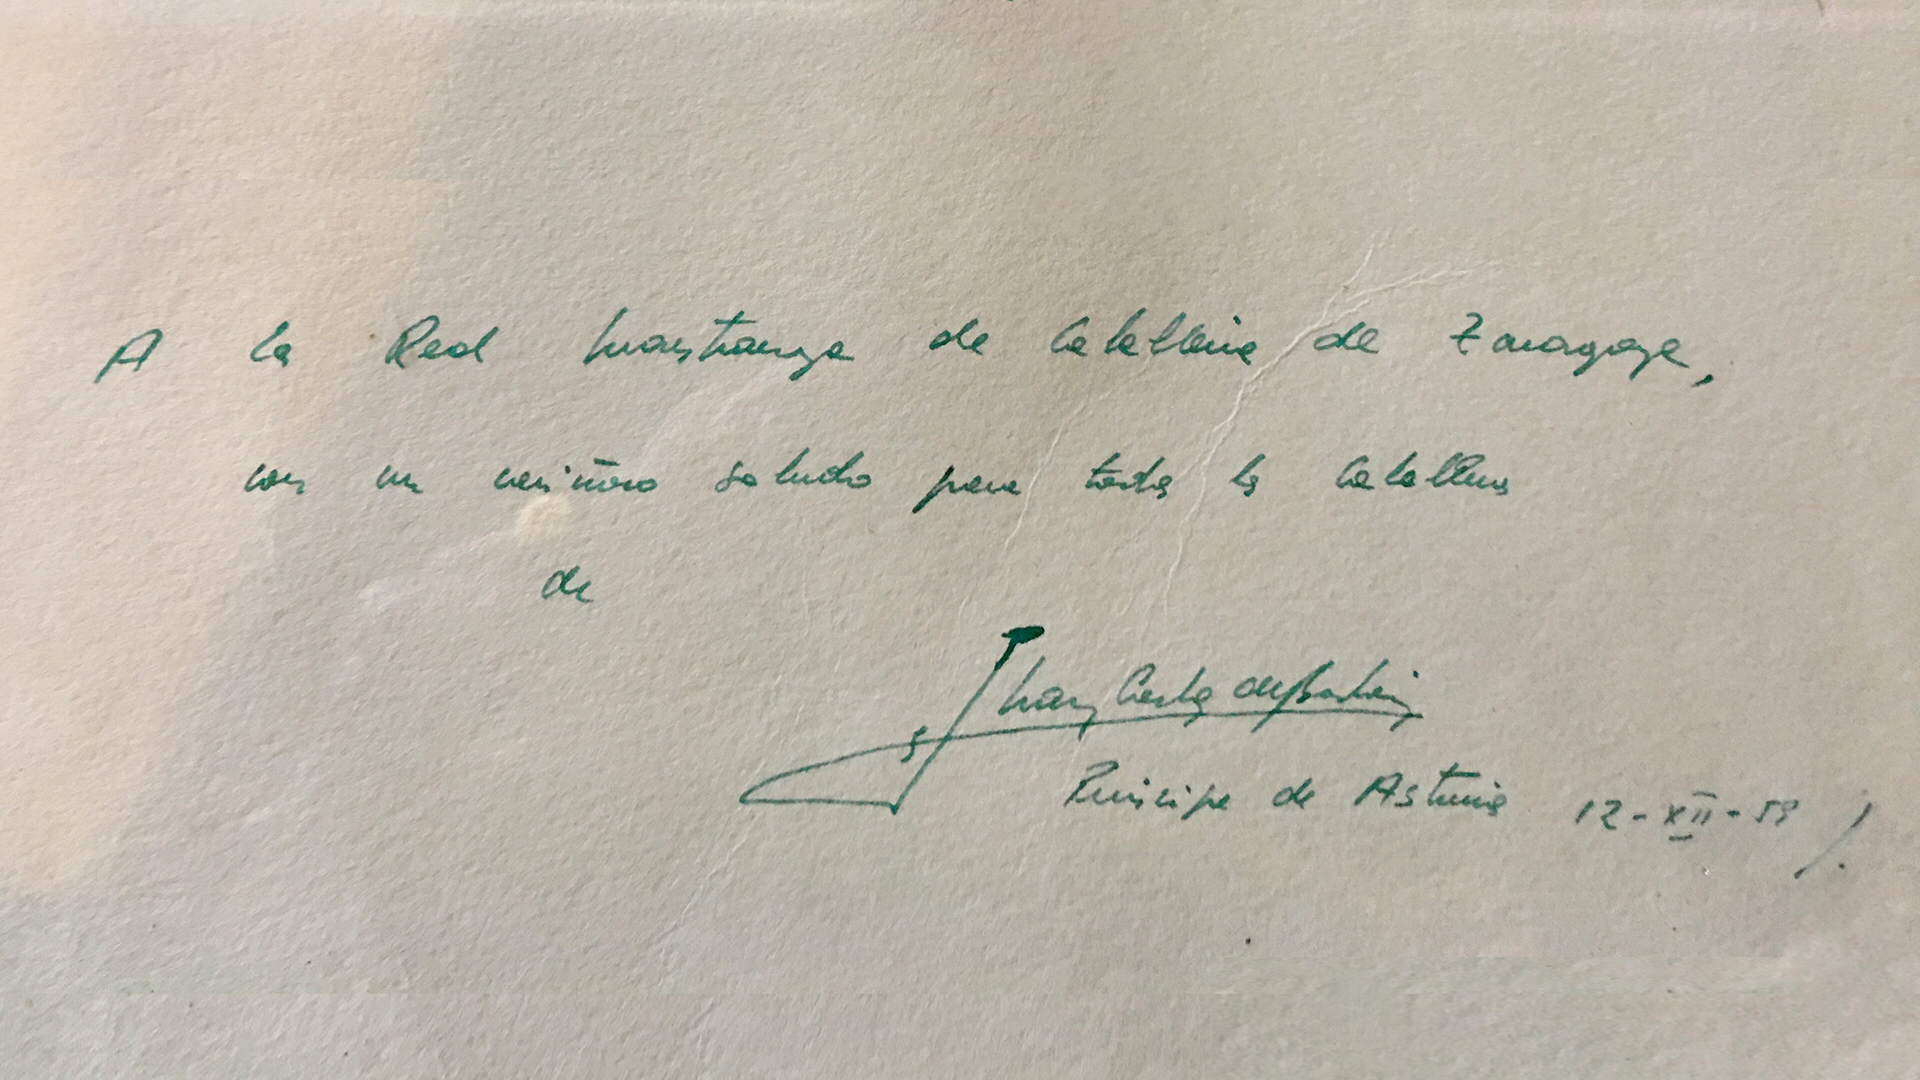 A la Real Maestranza de Caballeria de Zaragoza,
con un cariñoso saludo para todos los Caballeros
de
Juan Carlos de Borbón
Principe de Asturias 12-XII-59